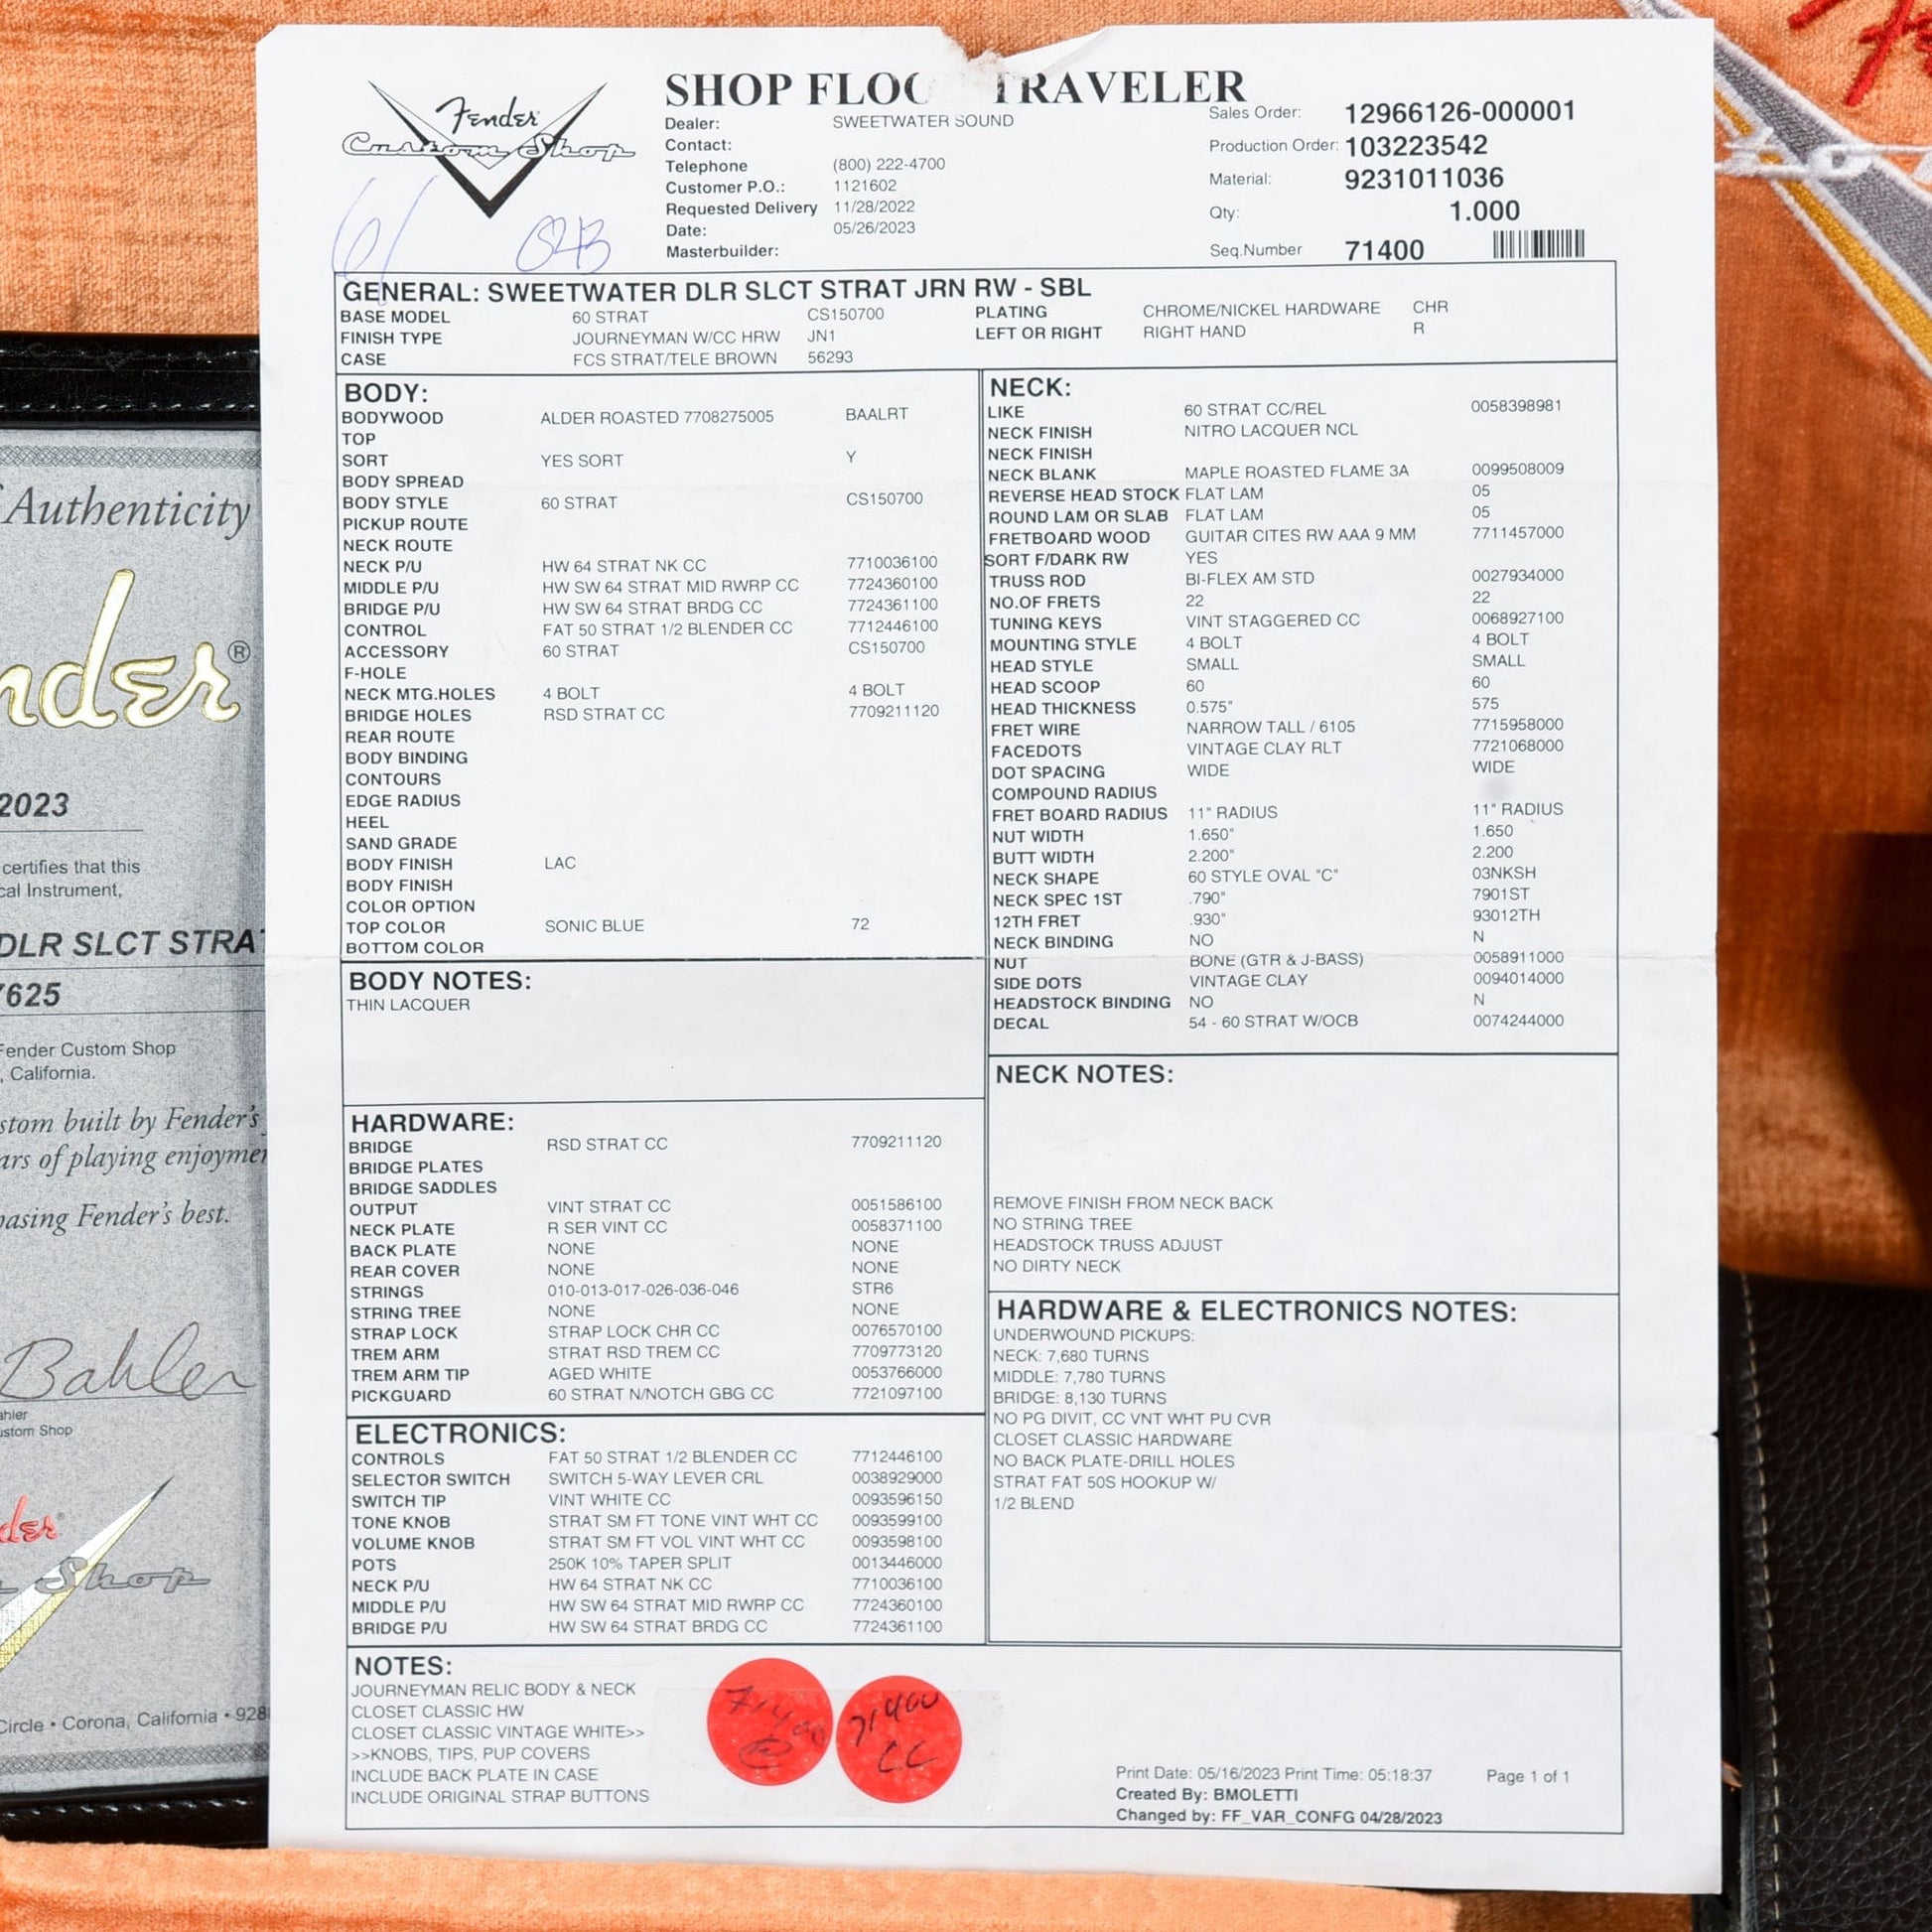 Fender
Custom Shop
SHOP FLOO TRAVELER
Dealer: SWEETWATER SOUND
Contact:
Telephone (800) 222-4700
Customer P.O.: 1121602
Requested Delivery 11/28/2022
Date: 05/26/2023
Masterbuilder:
Sales Order: 12966126-000001
Production Order: 103223542
Material: 9231011036
Qty: 1.000
Seq.Number 71400
GENERAL: SWEETWATER DLR SLCT STRAT JRN RW - SBL
BASE MODEL 60 STRAT CS150700 PLATING CHROME/NICKEL HARDWARE CHR
FINISH TYPE JOURNEYMAN W/CC HRW JN1 LEFT OR RIGHT RIGHT HAND R
CASE FCS STRAT/TELE BROWN 56293
BODY:
BODYWOOD ALDER ROASTED 7708275005 BAALRT
TOP
SORT YES SORT Y
BODY SPREAD
BODY STYLE 60 STRAT CS150700
PICKUP ROUTE
NECK ROUTE
NECK P/U HW 64 STRAT NK CC 7710036100
MIDDLE P/U HW SW 64 STRAT MID RWRP CC 7724360100
BRIDGE P/U HW SW 64 STRAT BRDG CC 7724361100
CONTROL FAT 50 STRAT 1/2 BLENDER CC 7712446100
ACCESSORY 60 STRAT CS150700
F-HOLE
NECK MTG.HOLES 4 BOLT 4 BOLT
BRIDGE HOLES RSD STRAT CC 7709211120
REAR ROUTE
BODY BINDING
CONTOURS
EDGE RADIUS
HEEL
SAND GRADE
BODY FINISH LAC
BODY FINISH
COLOR OPTION
TOP COLOR SONIC BLUE 72
BOTTOM COLOR
BODY NOTES:
THIN LACQUER
HARDWARE:
BRIDGE RSD STRAT CC 7709211120
BRIDGE PLATES
BRIDGE SADDLES
OUTPUT VINT STRAT CC 0051586100
NECK PLATE R SER VINT CC 0058371100
BACK PLATE NONE NONE
REAR COVER NONE NONE
STRINGS 010-013-017-026-036-046 STR6
STRING TREE NONE NONE
STRAP LOCK STRAP LOCK CHR CC 0076570100
TREM ARM STRAT RSD TREM CC 7709773120
TREM ARM TIP AGED WHITE 0053766000
PICKGUARD 60 STRAT N/NOTCH GBG CC 7721097100
ELECTRONICS:
CONTROLS FAT 50 STRAT 1/2 BLENDER CC 7712446100
SELECTOR SWITCH SWITCH 5-WAY LEVER CRL 0038929000
SWITCH TIP VINT WHITE CC 0093596150
TONE KNOB STRAT SM FT TONE VINT WHT CC 0093599100
VOLUME KNOB STRAT SM FT VOL VINT WHT CC 0093598100
POTS 250K 10% TAPER SPLIT 0013446000
NECK P/U HW 64 STRAT NK CC 7710036100
MIDDLE P/U HW SW 64 STRAT MID RWRP CC 7724360100
BRIDGE P/U HW SW 64 STRAT BRDG CC 7724361100
NECK:
LIKE 60 STRAT CC/REL 0058398981
NECK FINISH NITRO LACQUER NCL
NECK FINISH
NECK BLANK MAPLE ROASTED FLAME 3A 0099508009
REVERSE HEAD STOCK FLAT LAM 05
ROUND LAM OR SLAB FLAT LAM 05
FRETBOARD WOOD GUITAR CITES RW AAA 9 MM 7711457000
SORT F/DARK RW YES
TRUSS ROD BI-FLEX AM STD 0027934000
NO.OF FRETS 22 22
TUNING KEYS VINT STAGGERED CC 0068927100
MOUNTING STYLE 4 BOLT 4 BOLT
HEAD STYLE SMALL SMALL
HEAD SCOOP 60 60
HEAD THICKNESS 0.575" 575
FRET WIRE NARROW TALL / 6105 7715958000
FACEDOTS VINTAGE CLAY RLT 7721068000
DOT SPACING WIDE WIDE
COMPOUND RADIUS
FRET BOARD RADIUS 11" RADIUS 11" RADIUS
NUT WIDTH 1.650" 1.650
BUTT WIDTH 2.200" 2.200
NECK SHAPE 60 STYLE OVAL "C" 03NKSH
NECK SPEC 1ST .790" 7901ST
12TH FRET .930" 93012TH
NECK BINDING NO N
NUT BONE (GTR & J-BASS) 0058911000
SIDE DOTS VINTAGE CLAY 0094014000
HEADSTOCK BINDING NO N
DECAL 54 - 60 STRAT W/OCB 0074244000
NECK NOTES:
REMOVE FINISH FROM NECK BACK
NO STRING TREE
HEADSTOCK TRUSS ADJUST
NO DIRTY NECK
HARDWARE & ELECTRONICS NOTES:
UNDERWOUND PICKUPS:
NECK: 7,680 TURNS
MIDDLE: 7,780 TURNS
BRIDGE: 8,130 TURNS
NO PG DIVIT, CC VNT WHT PU CVR
CLOSET CLASSIC HARDWARE
NO BACK PLATE-DRILL HOLES
STRAT FAT 50S HOOKUP W/
1/2 BLEND
NOTES:
JOURNEYMAN RELIC BODY & NECK
CLOSET CLASSIC HW
CLOSET CLASSIC VINTAGE WHITE>>
>>KNOBS, TIPS, PUP COVERS
INCLUDE BACK PLATE IN CASE
INCLUDE ORIGINAL STRAP BUTTONS
71400
71400
CC
Print Date: 05/16/2023 Print Time: 05:18:37 Page 1 of 1
Created By: BMOLETTI
Changed by: FF_VAR_CONFG 04/28/2023
Authenticity
nder®
2023
certifies that this
cal Instrument,
DLR SLCT STRAT
7625
Fender Custom Shop
, California.
stom built by Fender's
ars of playing enjoymen
hasing Fender's best.
Bahler
ahler
ustom Shop
der
Shop
Circle • Corona, California • 928